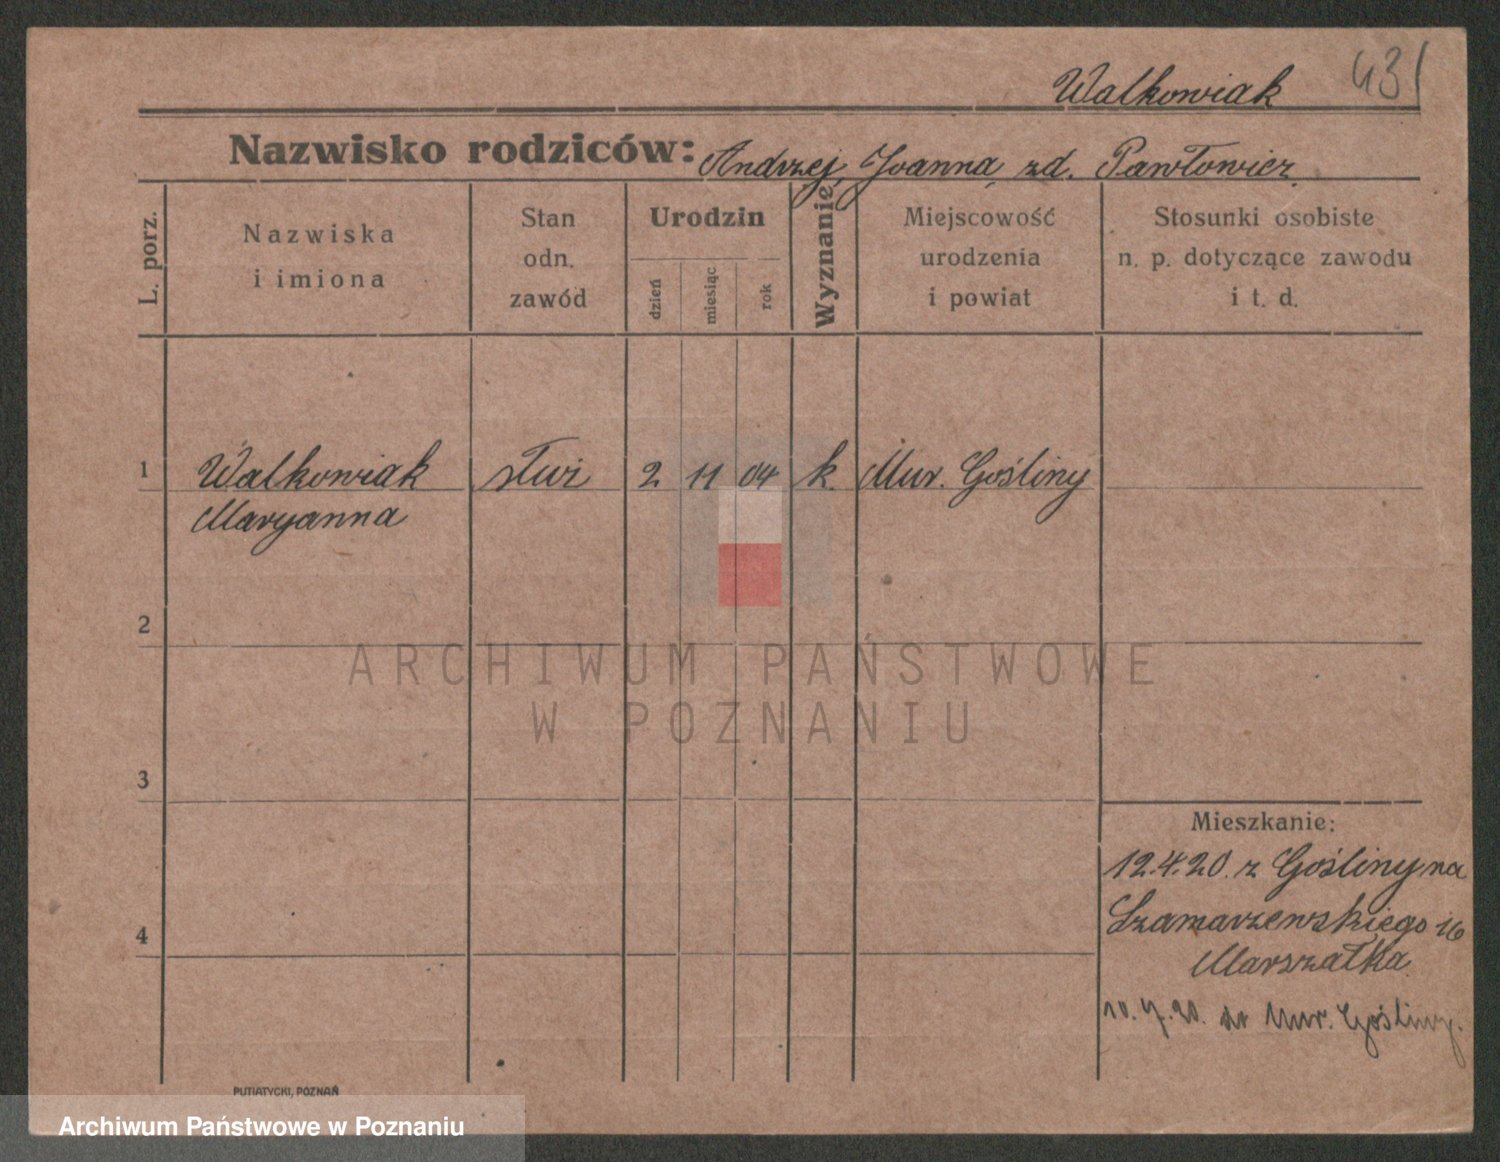 Walkowiak 431
Nazwisko rodziców: Andrzej, Joanna, zd. Pawłowicz
L. porz.
Nazwiska
i imiona
Stan
odn.
zawód
Urodzin
dzień
miesiąc
rok
Wyznanie
Miejscowość
urodzenia
i powiat
Stosunki osobiste
n. p. dotyczące zawodu
i t. d.
1 Walkowiak służ 2 11 04 k. Mur. Gośliny
Maryanna
2
ARCHIWUM PAŃSTWOWE
W POZNANIU
3
Mieszkanie:
12.4.20. z Gośliny na
Szamarzewskiego 16
4
Marszałka
10.7.20. do Mur. Gośliny.
PUTIATYCKI, POZNAŃ
Archiwum Państwowe w Poznaniu